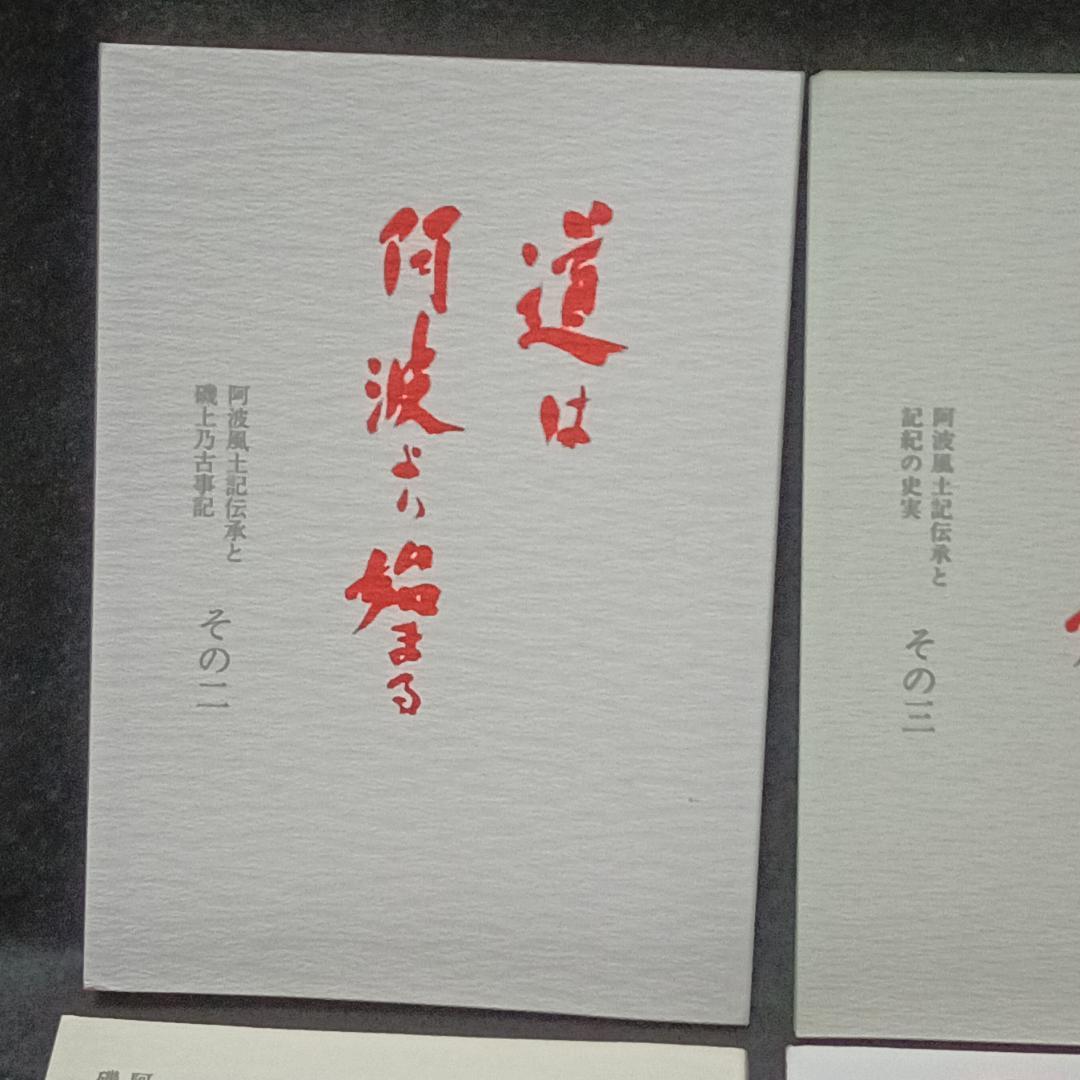 道は
阿波より始まる
阿波風土記伝承と
磯上乃古事記
その二
阿波風土記伝承と
記紀の史実
その三
阿
磯